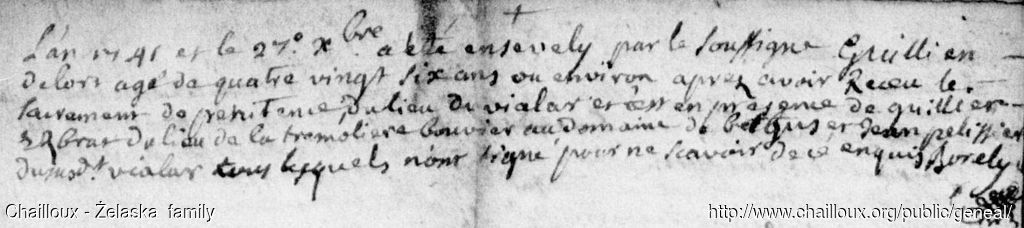 L'an 1741 et le 27e Xbre a été ensevely par le soussigné Guillien
delort agé de quatre vingt six ans ou environ aprez avoir Receu le
sacrement de penitence, du lieu du vialar et c'est en presence de guillien
Abrat du lieu de la tremoliere bouvier au domaine de et Jean pelissier
du susdt vialar tous lesquels n'ont signé pour ne scavoir de ce enquis Borely
Chailloux - Żelaska family
http://www.chailloux.org/public/geneal/